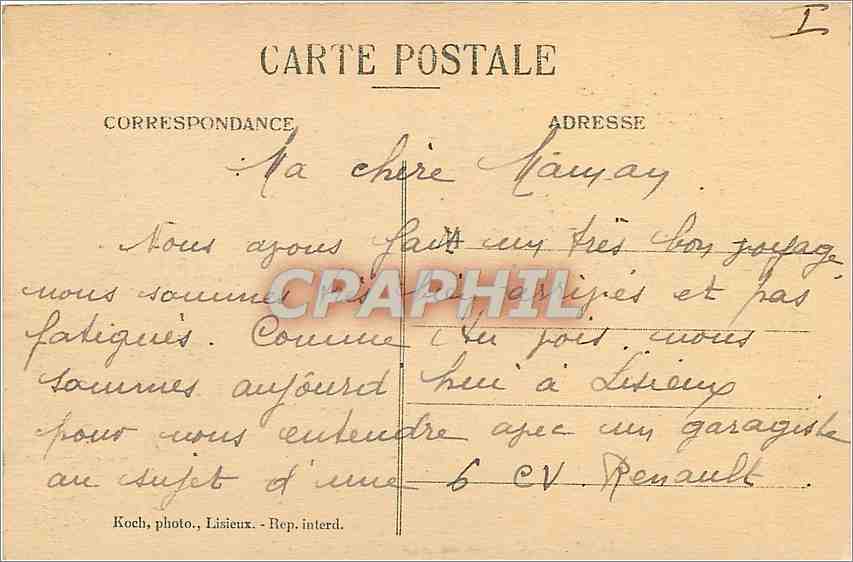 I
CARTE POSTALE
CORRESPONDANCE
ADRESSE
Ma chère Maman
Nous avons fait un très bon voyage,
nous sommes très bien arrivés et pas
fatigués. Comme tu vois nous
sommes aujourd'hui à Lisieux
pour nous entendre avec un garagiste
au sujet d'une 6 CV Renault.
CPAPHIL
Koch, photo., Lisieux. - Rep. interd.